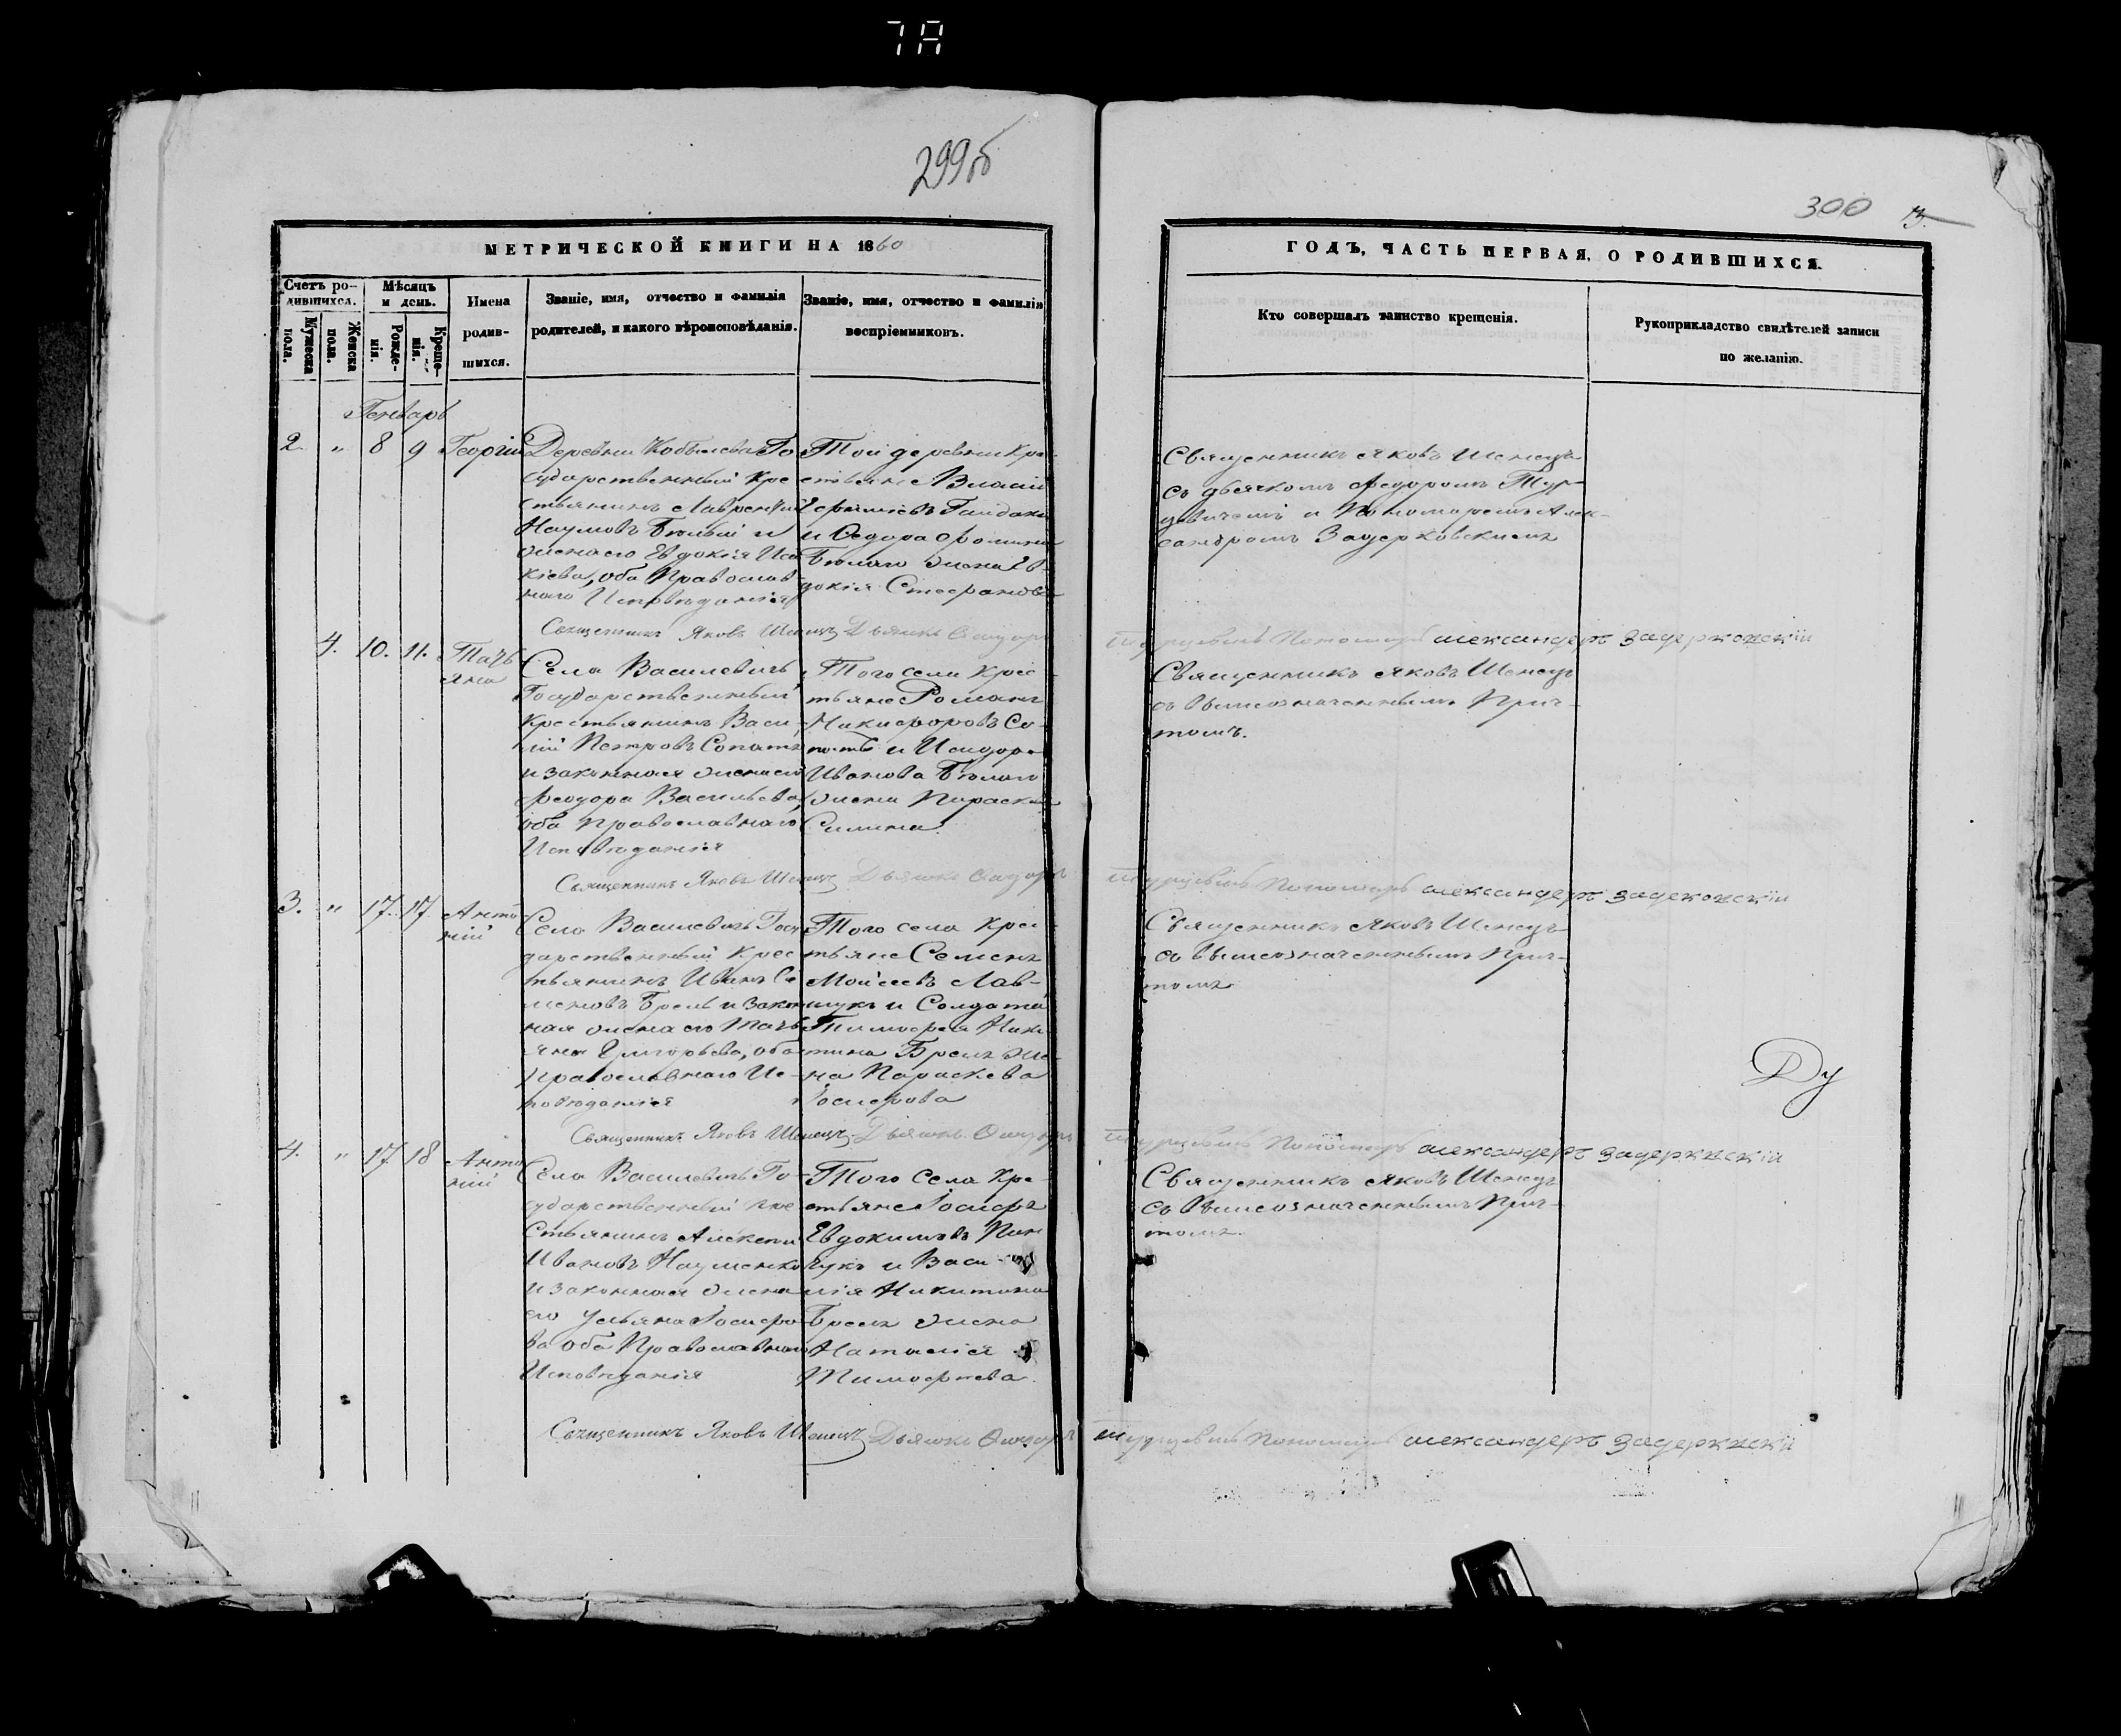 7A
299об
300
13
МЕТРИЧЕСКОЙ КНИГИ НА 1860
ГОДЪ, ЧАСТЬ ПЕРВАЯ, О РОДИВШИХСЯ.
Счетъ ро-
дившихся.
Мужеска
пола.
Женска
пола.
Мѣсяцъ
и день.
Рожде-
нія.
Креще-
нія.
Имена
родив-
шихся.
Званіе, имя, отчество и фамилія
родителей, и какого вѣроисповѣданія.
Званіе, имя, отчество и фамилія
воспріемниковъ.
Кто совершалъ таинство крещенія.
Рукоприкладство свидѣтелей записи
по желанію.
Генварь
2. " 8 9 Георгій
Деревни Кобылева Го
сударственный Кре
стьянинъ Лаврентій
Наумовъ Бѣлый и
жена его Евдокія Иса
кіева, оба Православ-
наго Исповѣданія
Той деревни Кре-
стьяне Власій
Гайдакъ
и Ѳедора Фомина
Бѣлаго жена Ев-
докія Стефанова
Священникъ Яковъ Шенецъ
съ дьячкомъ Федоромъ Тур-
цевичемъ и Пономаремъ Алек-
сандромъ Задерковскимъ
Священникъ Яковъ Шенецъ Дьячекъ Ѳеодоръ
Турцевичъ Пономарь александеръ Задерковскій
4. 10. 11. Тать
яна
Села Василевичь
Государственный
Крестьянинъ Васи-
лій Петровъ Сопотъ
и законная жена его
Феодора Васильева,
оба Православнаго
Исповѣданія
Того села Крес-
тьяне Романъ
Никифоровъ Со-
потъ и Исидора
Иванова Бѣлаго
жена Параскева
Силина.
Священникъ Яковъ Шенецъ
съ вышеозначеннымъ Прич-
томъ.
Священникъ Яковъ Шенецъ Дьячекъ Ѳеодоръ
Турцевичъ Пономарь александеръ
3. " 17. 17. Анто
ній
Села Василевичь Госу
дарственный Крес
тьянинъ Иванъ Се
меновъ Брель и закон
ная жена его Тать
яна Григорьева, оба
Православнаго Ис-
повѣданія
Того села Крес-
тьяне Семенъ
Моисеевъ Лав-
шукъ и Солдата
Тимофея Ники-
тина Брель же-
на Параскева
Іосифова
Священникъ Яковъ Шенецъ
съ вышеозначеннымъ Прич-
томъ
Ду
Священникъ Яковъ Шенецъ Дьячекъ Ѳеодоръ
Турцевичъ Пономарь александеръ
4. " 17 18 Анто
ній
Села Василевичь Го-
сударственный Кре
стьянинъ Алексѣй
Ивановъ Науменко
и законная жена
его Ульяна Іосифо
ва оба Православнаго
Исповѣданія
Того Села Кре-
стьяне Іосифъ
Евдокимовъ Пин
чукъ и Васи-
лія Никитина
Брель жена
Наталія
Тимофеева.
Священникъ Яковъ Шенецъ
съ Вышеозначеннымъ Прич-
томъ.
Священникъ Яковъ Шенецъ Дьячекъ Ѳеодоръ
Турцевичъ Пономарь александеръ